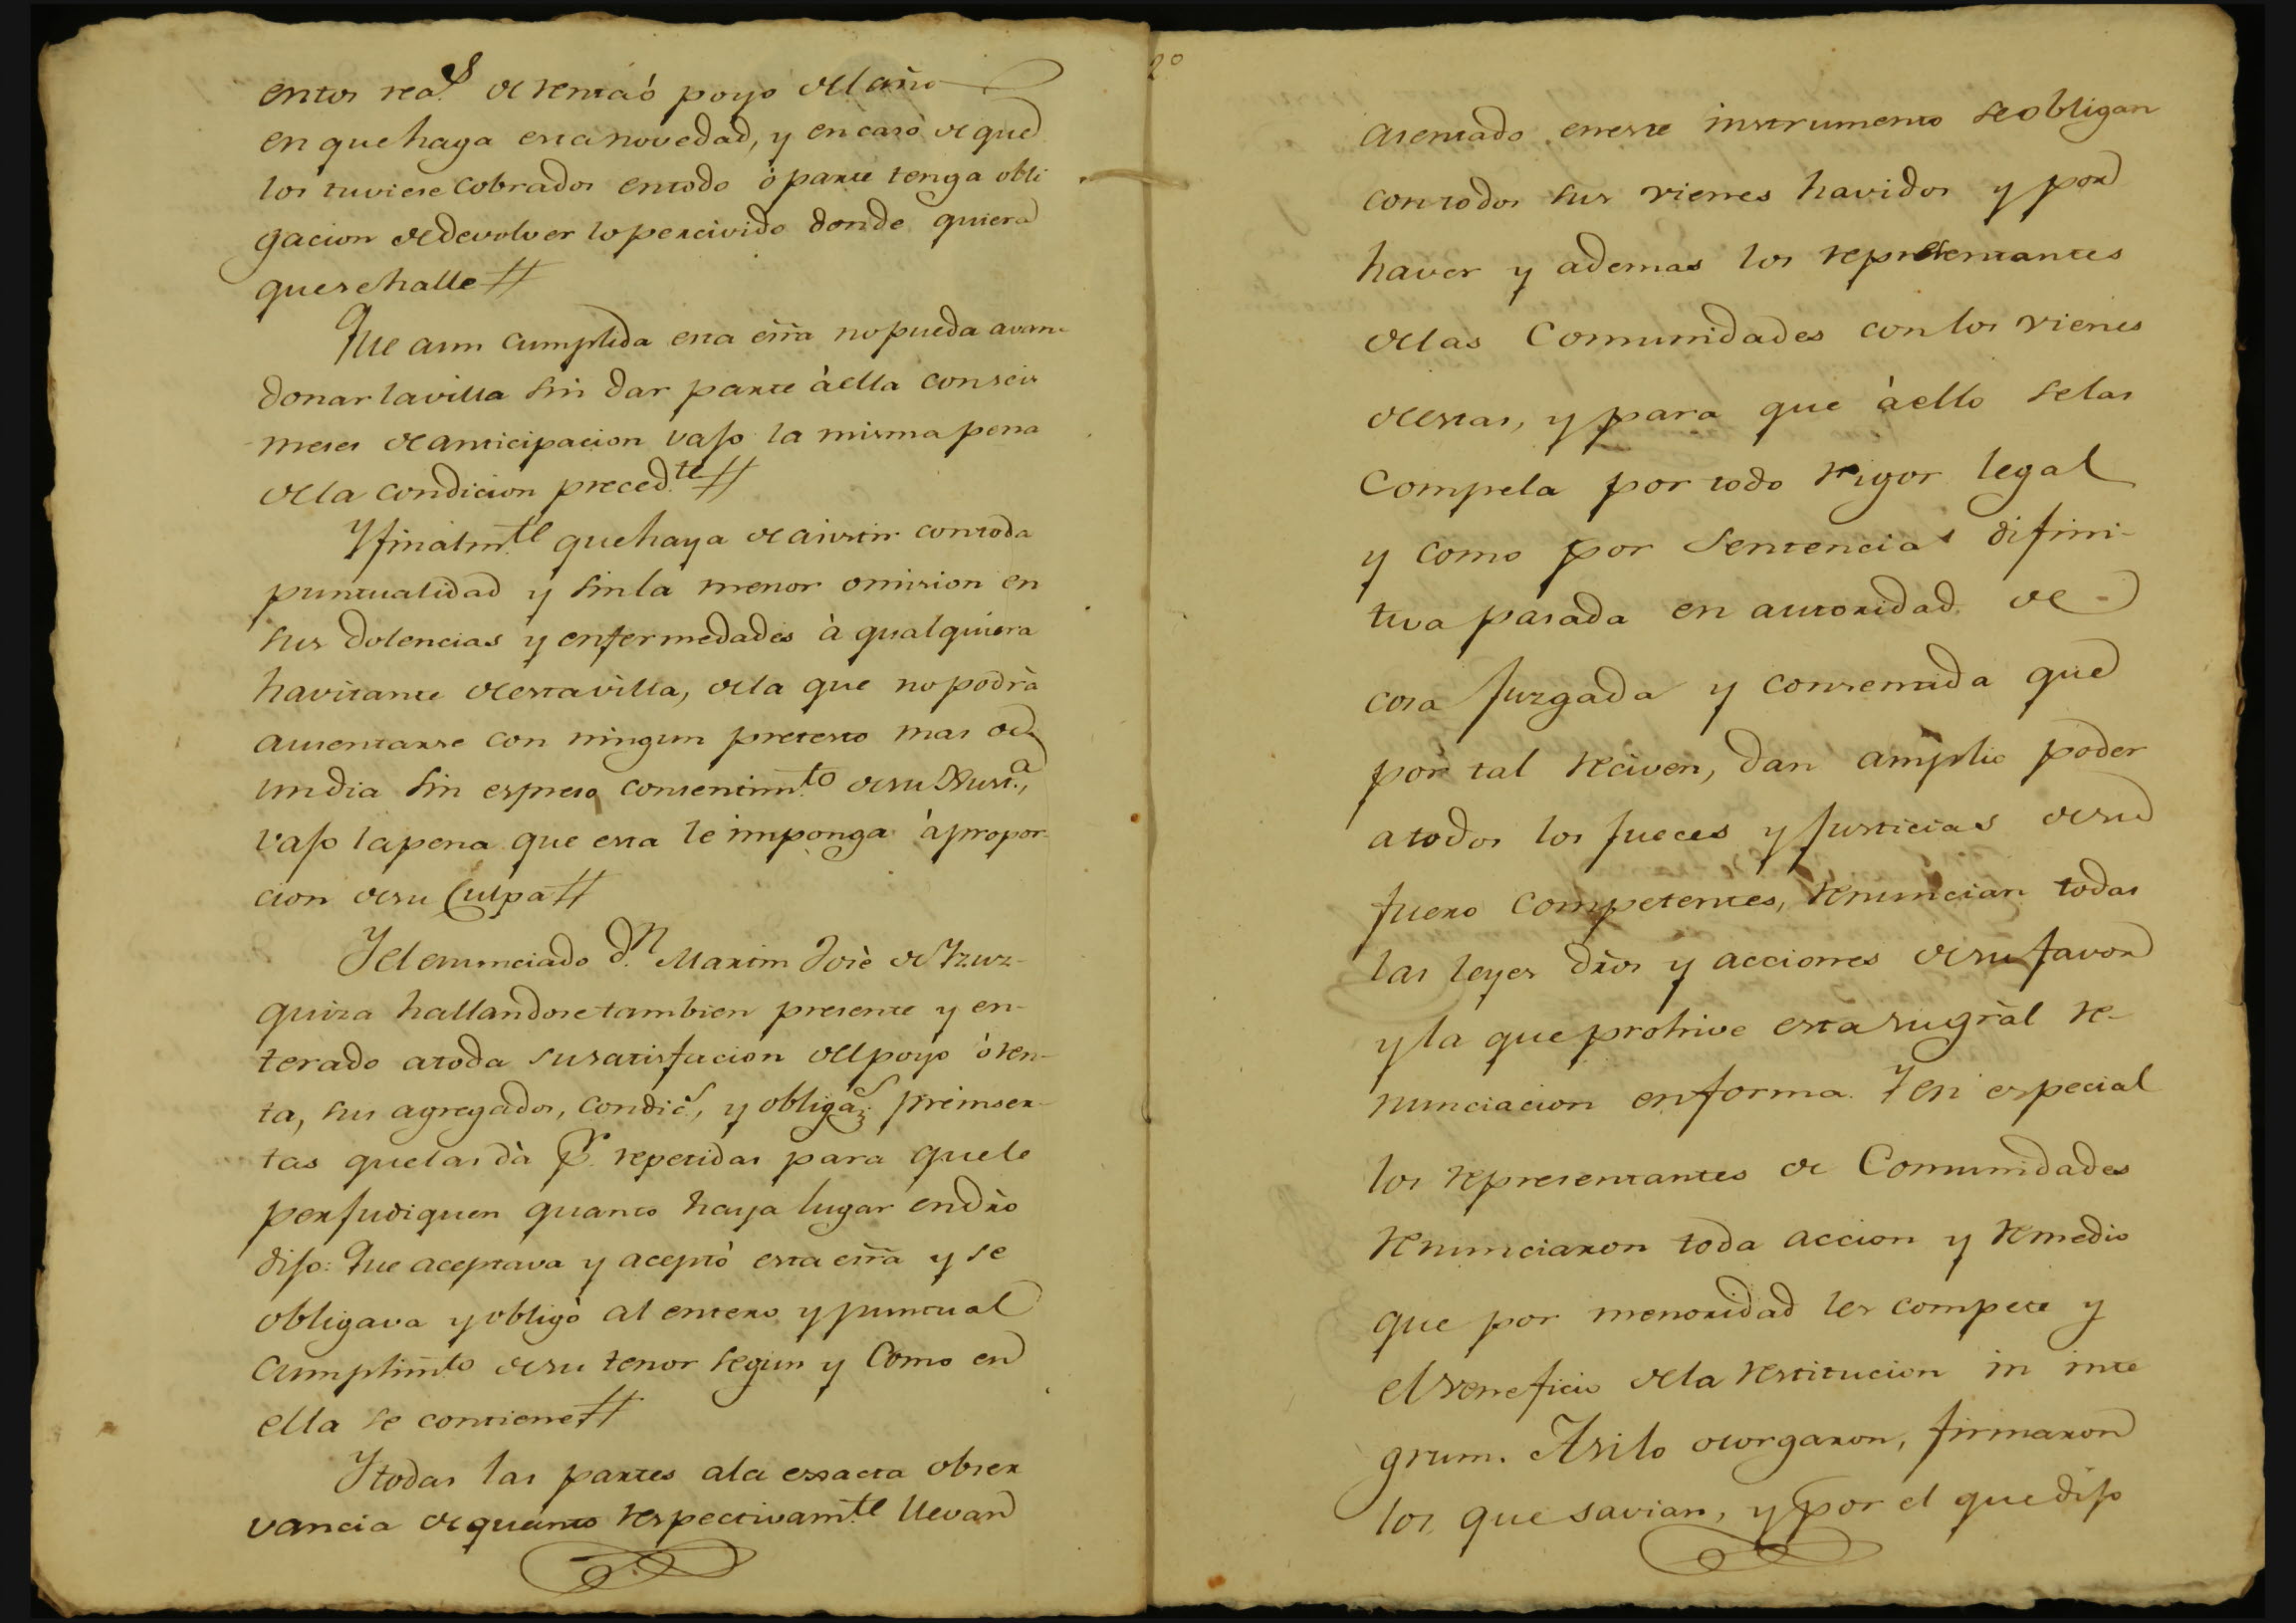 entos rea.s de renta ò poyo del año
en que haga esta novedad, y en caso de que
los tuviese cobrados en todo ò parte tenga obli
gacion de devolver lo percivido donde quiera
que se halle
Que aun cumplida esta esrã no pueda avan-
donar la villa sin dar parte à ella con seis
meses de anticipacion vajo la misma pena
de la condicion preced.te
Y finalm.te que haya de asistir con toda
puntualidad y sin la menor omision en
sus dolencias y enfermedades à qualquiera
havitante de esta villa, de la que no podrà
ausentarse con ningun pretesto mas de
un dia sin espreso consentim.to de su Just.a,
vajo la pena que esta le imponga à propor-
cion de su Culpa
Y el enunciado d.n Martin Josè de Yzuz-
quiza hallandose tambien presente y en-
terado a toda su satisfacion del poyo ò ren-
ta, sus agregados, condic.s, y obligaz.s preinser-
tas que las dà p.r repetidas para que le
perjudiquen quanto haya lugar en dr̃o
dijo: Que aceptava y aceptò esta esrã y se
obligava y obligò al entero y puntual
cumplim̃to de su tenor segun y Como en
ella se contiene
Y todas las partes a la exsacta obser
vancia de quanto respectivam.te llevan
2º
asentado en este instrumento se obligan
con todos sus vienes havidos y por
haver y ademas los representantes
de las Comunidades con los vienes
de estas, y para que à ello se las
Compela por todo rigor legal
y como por Sentencia difini-
tiva pasada en autoridad de
cosa Juzgada y consentida que
por tal reciven, dan amplio poder
a todos los Jueces y Justicias de su
fuero Competentes, renuncian todas
las leyes dr̃os y acciones de su favor
y la que prohive esta su gr̃al re-
nunciacion en forma. Y en especial
los representantes de Comunidades
renunciaron toda accion y remedio
que por menoridad les compete y
el veneficio de la restitucion in inte
grum. Asi lo otorgaron, firmaron
los que savian, y por el que dijo